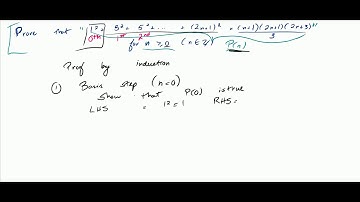 Prove that "1² + 3² + 5² + ... + (2n+1)² = (n+1)(2n+1)(2n+3)"
3
0th 1st 2nd
for n ≥ 0 (n∈ℤ) P(n)
Proof by induction
① Basis step (n=0)
Show that P(0) is true
LHS = 1² = 1 RHS =